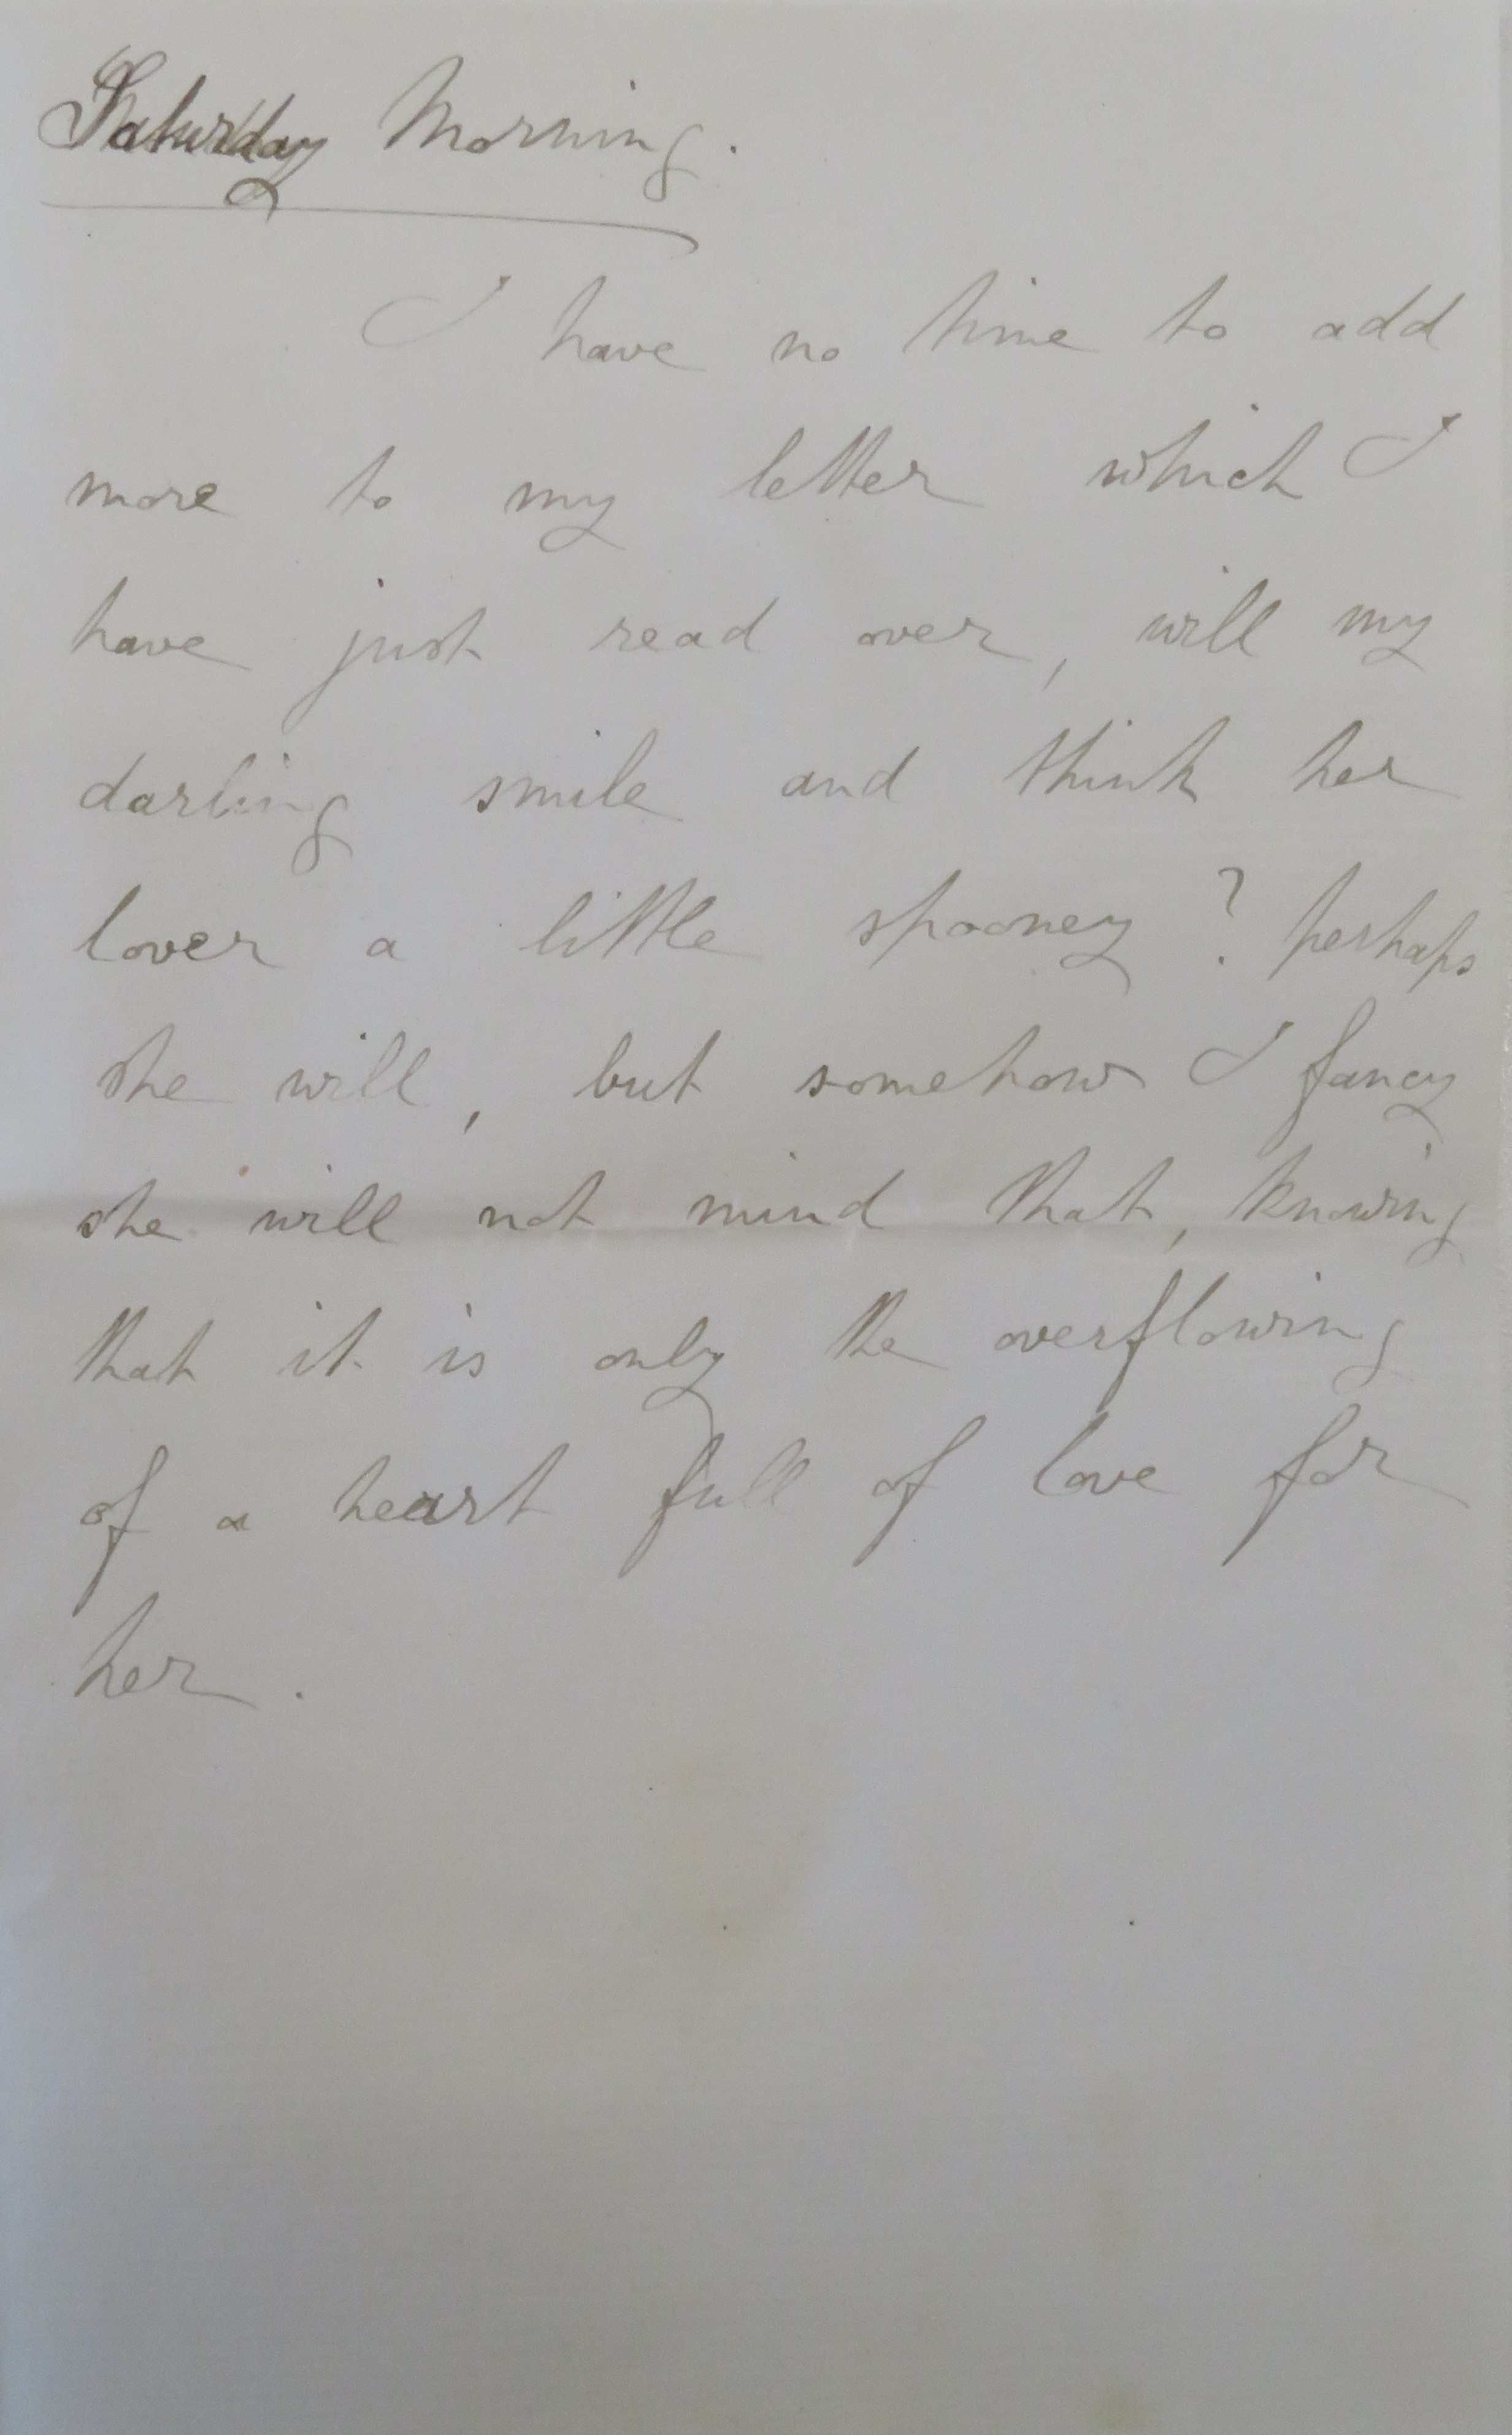 Saturday Morning.
I have no time to add
more to my letter which I
have just read over, will my
darling smile and think her
lover a little spooney? perhaps
she will, but somehow I fancy
she will not mind that, knowing
that it is only the overflowing
of a heart full of love for
her.